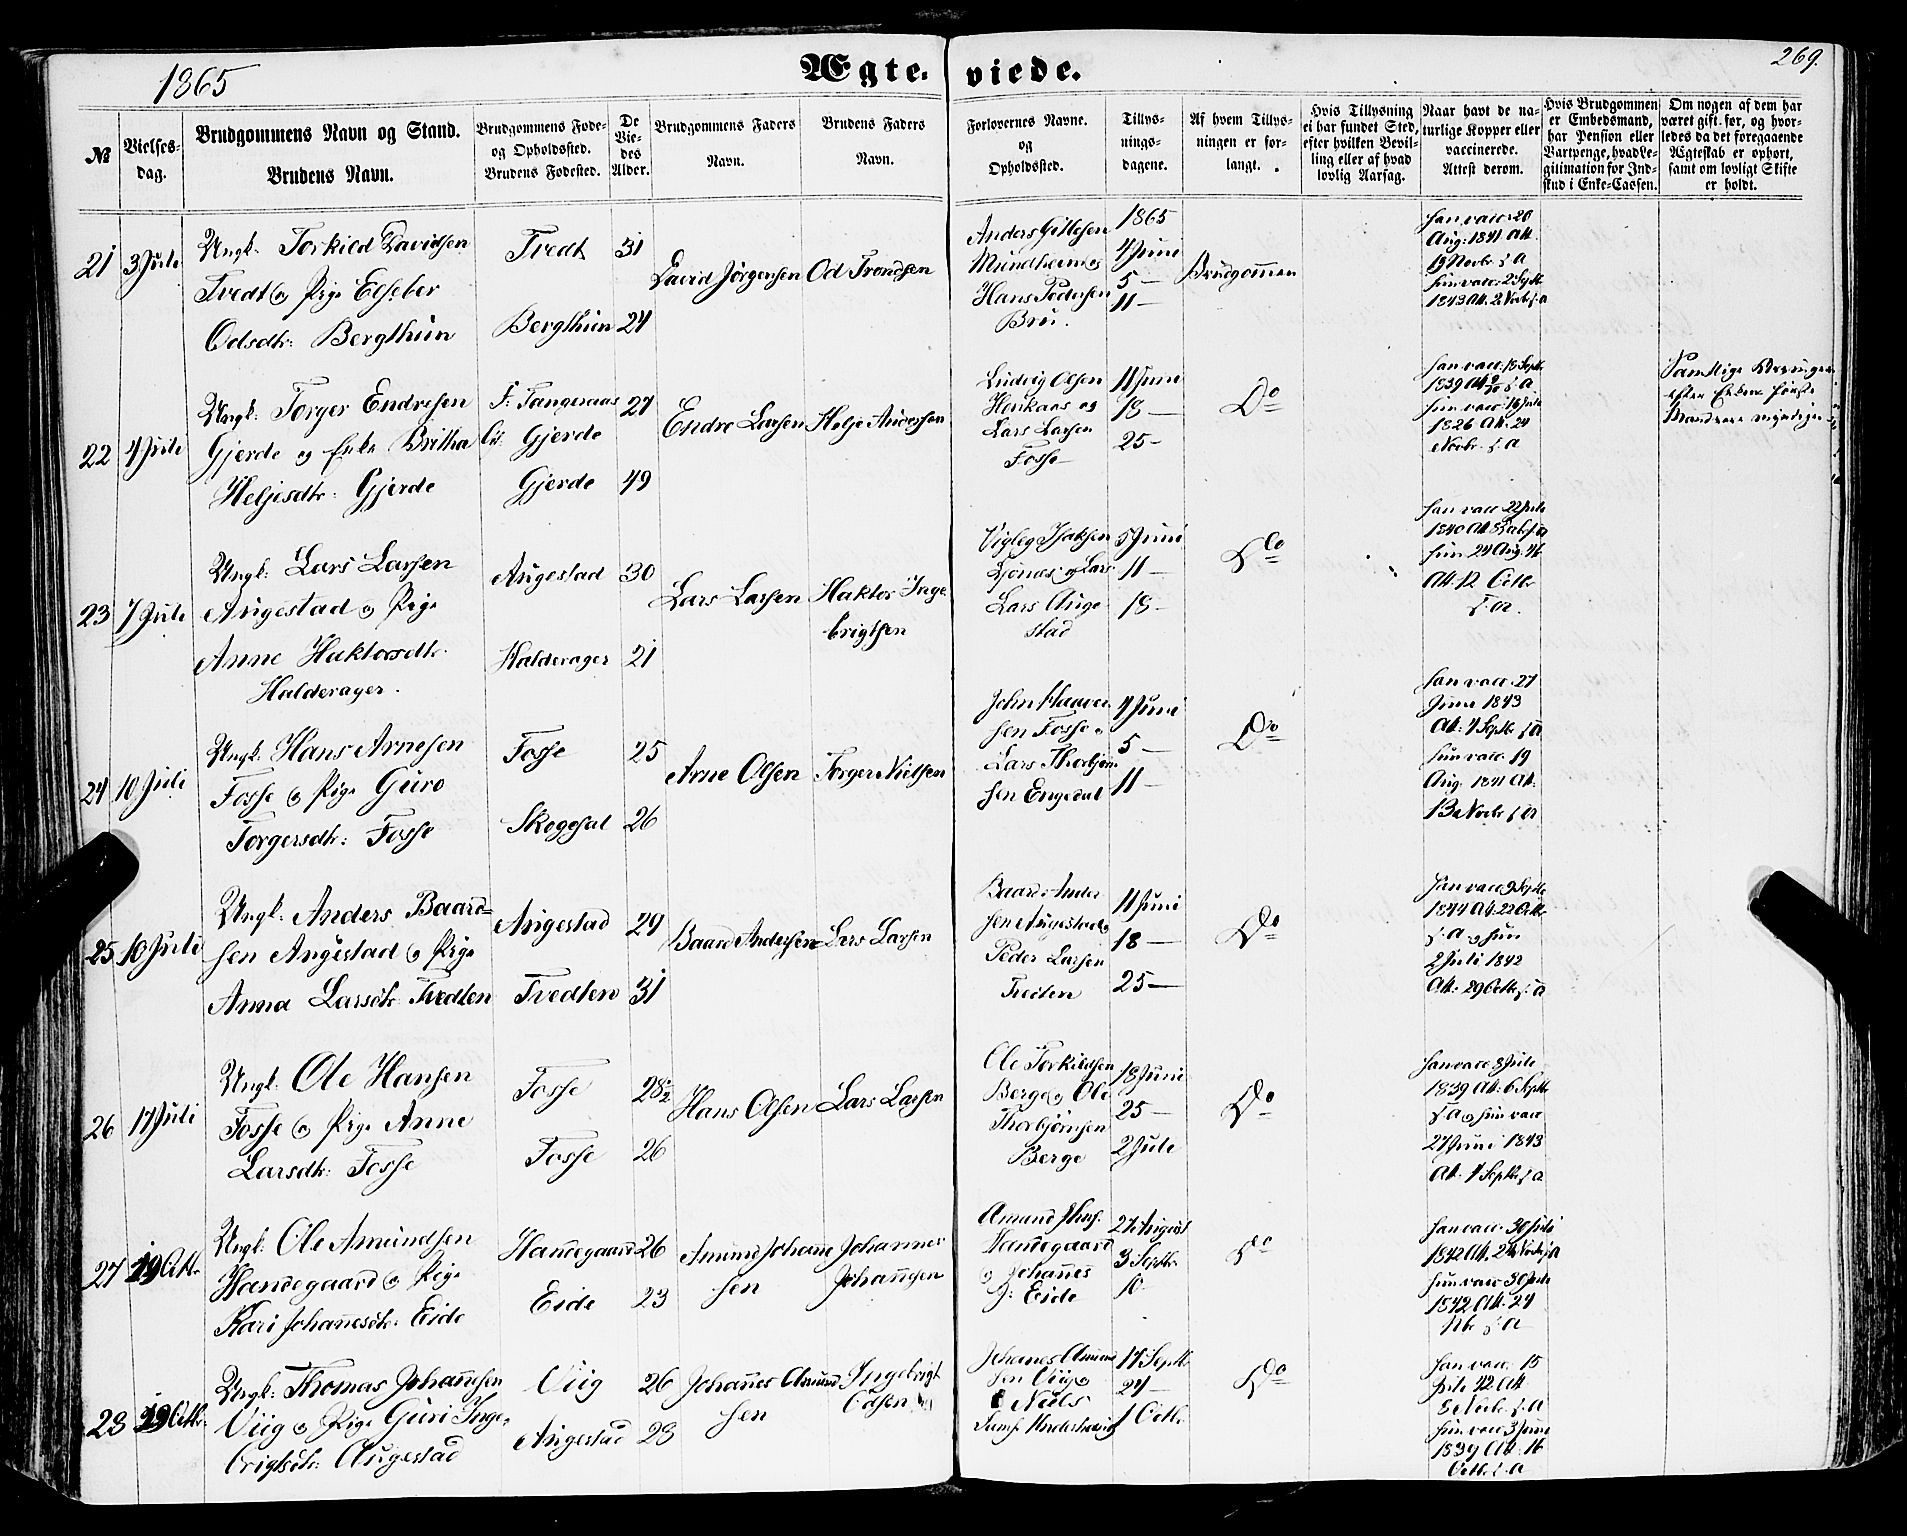 1865
Ægteviede.
269.
№
Vielses-
dag.
Brudgommens Navn og Stand.
Brudens Navn.
Brudgommens Føde-
og Opholdssted.
Brudens Fødested.
De
Vie-
des
Alder.
Brudgommens Faders
Navn.
Brudens Faders
Navn.
Forlovernes Navne.
og
Opholdssted.
Tillys-
nings-
dagene.
Af hvem Tillys-
ningen er for-
langt.
Hvis Tillysning
ei har fundet Sted,
efter hvilken Bevil-
ling eller af hvad
lovlig Aarsag.
Naar havt de na-
turlige Kopper eller
vaccinerede.
Attest derom.
Hvis Brudgommen
er Embedsmand,
har Pension eller
Vartpenge, hvad Le-
gitimation for Ind-
skud i Enke-Cassen.
Om nogen af dem har
været gift før, og hvor-
ledes da det foregaaende
Ægteskab er ophørt,
samt om lovligt Skifte
er holdt.
21
3 Juli
Ungk: Torkild Davidsen
Tvedt og Pige Elseber
Odsdtr: Bergthun
Tvedt 31
Bergthun 24
David Jørgensen
Od Trondsen
Anders Gitlesen
Mundheim og
Hans Pedersen
Bru.
1865
4 Juni
5 —
11 —
Brudgommen
han vacc: 20
Aug: 1841 Att.
19 Novbr s. A
hun vacc. 2 Septb
1843 Att. 2 Novb s. a
22
4 Juli
Ungk: Torger Endresen
Gjerde og Enke Britha
Heljesdtr: Gjerde
F: Tangeraas 27
Gjerde
Gjerde 49
Endre Larsen
Helje Andersen
Ludvig Olsen
og
Lars Larsen
Fosse
11 Juni
18 —
25 —
Do
han vacc. 18 Septb.
1839 Att s. a
hun vacc. 16 Juli
1826 Att. 24
Novbr. s. a
23
7 Juli
Ungk: Lars Larsen
Augestad og Pige
Anne Haktorsdtr.
Halderager.
Augestad 30
Halderager 21
Lars Larsen
Haktor Inge
brigtsen
Vigleg Isaksen
og Lars
Lars Auge
stad
5 Juni
11 —
18 —
Do
han vacc 22 Juli
1840 Att
hun 24 Aug. 46
Att 12 Octb
s. a.
24
10 Juli
Ungk: Hans Arnesen
Fosse og Pige Guro
Torgersdtr: Fosse
Fosse 25
Skogesal 26
Arne Olsen
Torger Nielsen
John Haavar
sen Fosse og
Lars Thorbjørn
sen Engedal
4 Juni
5 —
11 —
Do
han vacc. 27
Juni 1843
Att: 4 Septb s. a
hun vacc. 19
Aug. 1841 Att.
13 Novbr s. a
25
10 Juli
Ungk: Anders Baard=
sen Augestad og Pige
Anna Larsdtr. Tvedten
Augestad 29
Tvedten 31
Baard Andersen
Lars Larsen
Baard Ander
sen Augestad og
Peder Larsen
Tveiten
11 Juni
18 —
25 —
Do
han vacc 9 Septb
1844 Att. 22 Octb
s. a og hun
2 Juli 1842
Att. 29 Octb s. a
26
17 Juli
Ungk: Ole Hansen
Fosse og Pige Anne
Larsdtr: Fosse
Fosse 28½
Fosse 26
Hans Olsen
Lars Larsen
Ole Torkildsen
Berge og Ole
Thorbjørnsen
Berge
18 Juni
25 —
2 Juli
Do
han vacc 8 Juli
1839 Att. 6 Septb
s. a og hun vacc
27 Juni 1843
Att. 4 Septb s. a
27
19 Octbr.
Ungk: Ole Amundsen
Handegaard og Pige
Kari Johanesdtr. Eide
Handegaard 26
Eide 23
Amund Johane
sen
Johannes
Johannesen
Amund Johs.
Handegaard
og Johannes
J: Eide
27 August
3 Septbr.
10
Do
han vacc. 30 Juli
1842 Att. 24 Novb s. a
hun vacc 30 Juli
1842 Att. 24
Nbr s. a
28
19 Octbr.
Ungk: Thomas Johannesen
Viig og Pige Guri Inge-
brigtsdtr. Augestad
Viig 26
Augestad 28
Johanes Amund
sen
Ingebrigt
Odsen
Johanes Amund
sen Viig og
Niels
17 Septb
24 —
1 Octbr.
Do
han vacc. 15
Juli 42 Att
8 Novbr. s. a
hun vacc 3 Juni
1839 Att. 16
Octb. s. a